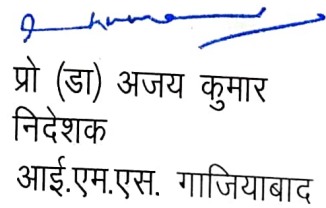 प्रो (डा) अजय कुमार
निदेशक
आई.एम.एस. गाजियाबाद